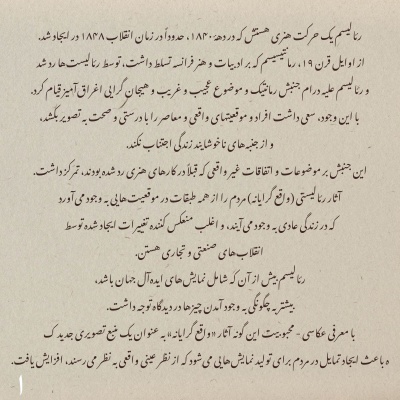 رئالیسم یک حرکت هنری هستش که در دههٔ ۱۸۴۰، حدوداً در زمان انقلاب ۱۸۴۸ در ایجاد شد.
از اوایل قرن ۱۹، رمانتیسیسم که بر ادبیات و هنر فرانسه تسلط داشت، توسط رئالیست‌ها رد شد
و رئالیسم علیه درام جنبش رمانتیک و موضوع عجیب و غریب و هیجان گرایی اغراق آمیز قیام کرد.
با این وجود، سعی داشت افراد و موقعیتهای واقعی و معاصر را با درستی و صحت به تصویر بکشد،
و از جنبه‌های ناخوشایند زندگی اجتناب نکند.
این جنبش بر موضوعات و اتفاقات غیر واقعی که قبلاً در کارهای هنری رد شده بودند، تمرکز داشت.
آثار رئالیستی (واقع گرایانه) مردم را از همه طبقات در موقعیت‌هایی به وجود می‌آورد
که در زندگی عادی به وجود می‌آیند، و اغلب منعکس کننده تغییرات ایجاد شده توسط
انقلاب‌های صنعتی و تجاری هستن.
رئالیسم بیش از آن که شامل نمایش‌های ایده‌آل جهان باشد،
بیشتر به چگونگی به وجود آمدن چیزها در دیدگاه توجه داشت.
با معرفی عکاسی - محبوبیت این گونه آثار «واقع گرایانه» به عنوان یک منبع تصویری جدید ک
ه باعث ایجاد تمایل در مردم برای تولید نمایش‌هایی می‌شود که از نظر عینی واقعی به نظر می‌رسند، افزایش یافت.